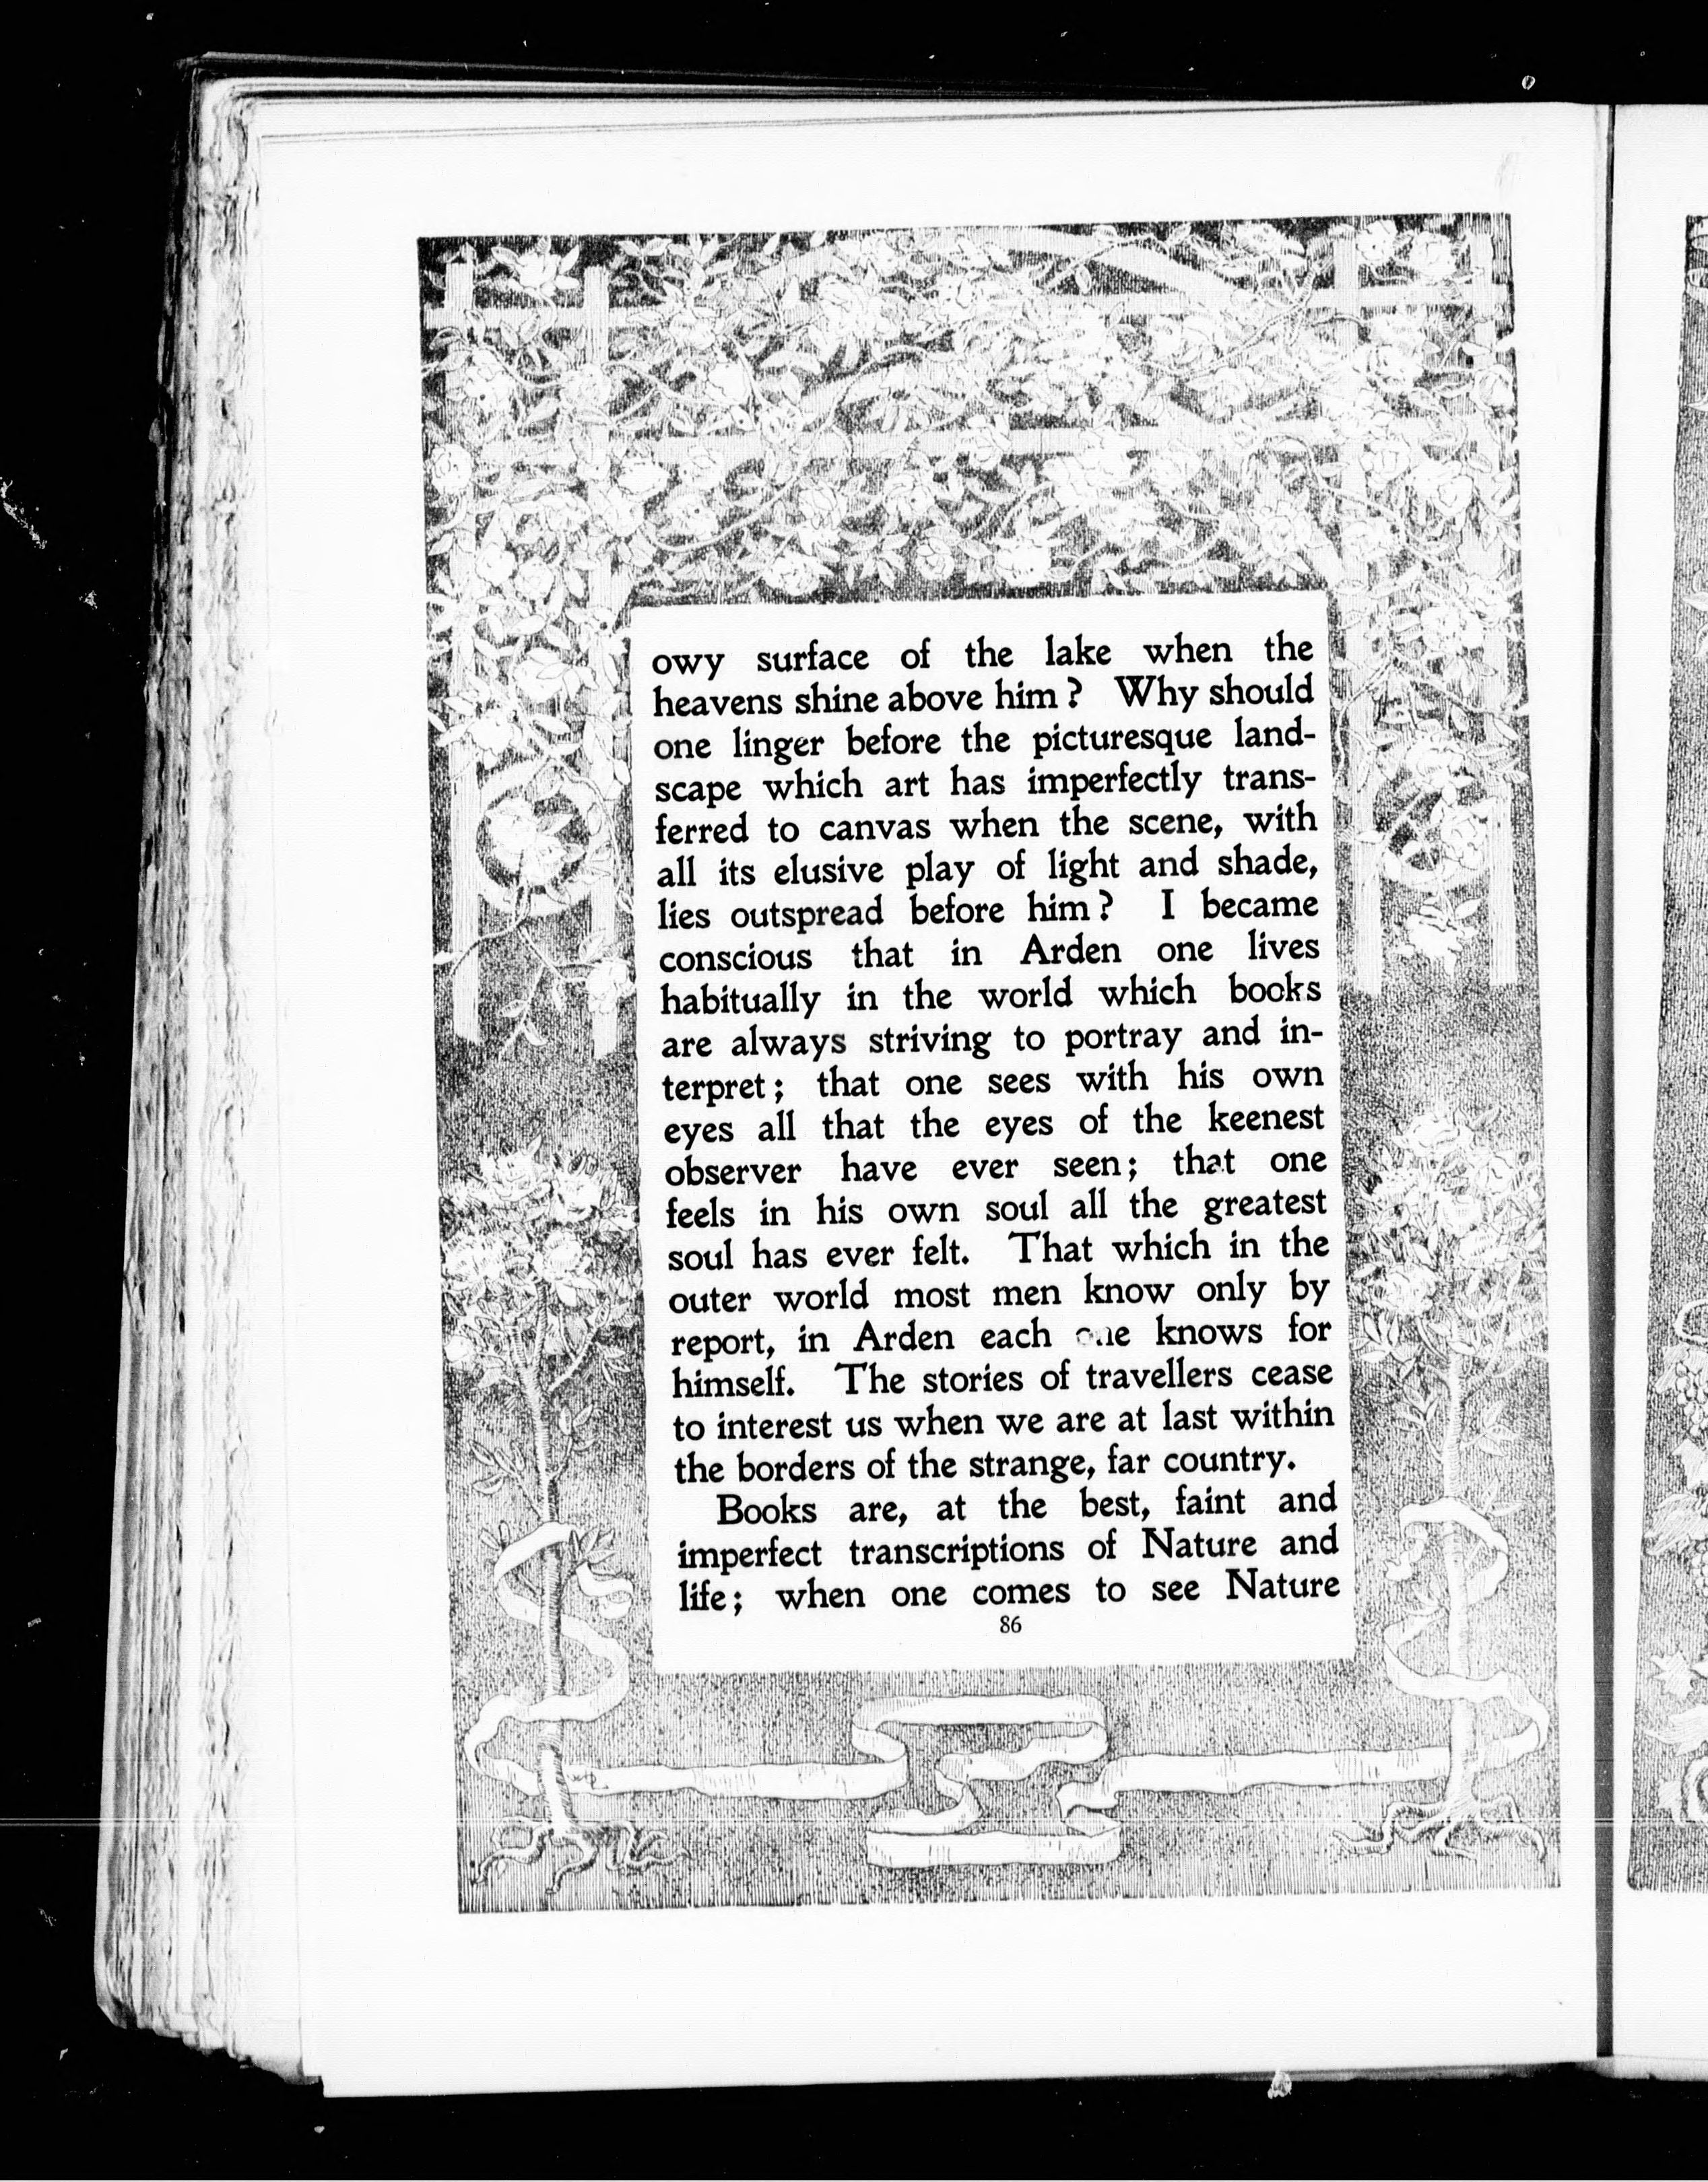 owy surface of the lake when the
heavens shine above him? Why should
one linger before the picturesque land-
scape which art has imperfectly trans-
ferred to canvas when the scene, with
all its elusive play of light and shade,
lies outspread before him? I became
conscious that in Arden one lives
habitually in the world which books
are always striving to portray and in-
terpret; that one sees with his own
eyes all that the eyes of the keenest
observer have ever seen; that one
feels in his own soul all the greatest
soul has ever felt. That which in the
outer world most men know only by
report, in Arden each one knows for
himself. The stories of travellers cease
to interest us when we are at last within
the borders of the strange, far country.
Books are, at the best, faint and
imperfect transcriptions of Nature and
life; when one comes to see Nature
86